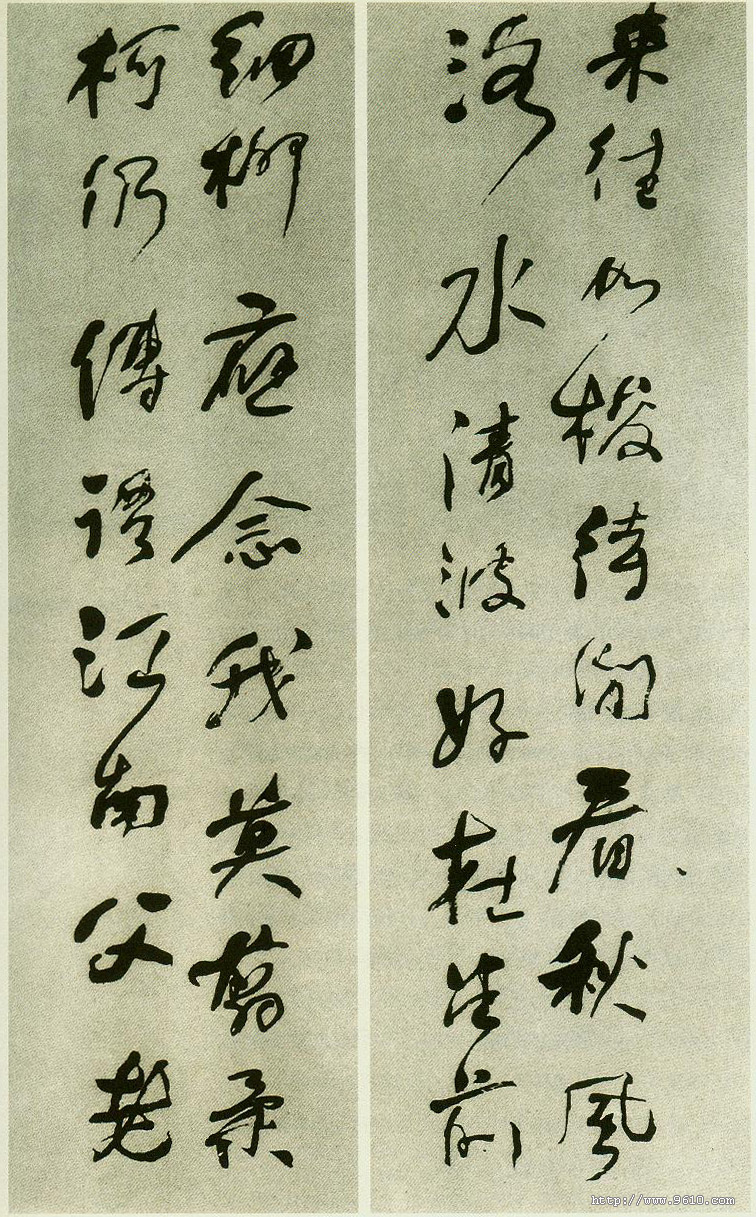 来往如梭待閒看秋風
洛水清波好在堂前
細柳應念我莫翦柔
柯仍傳語江南父老
http://www.9610.com